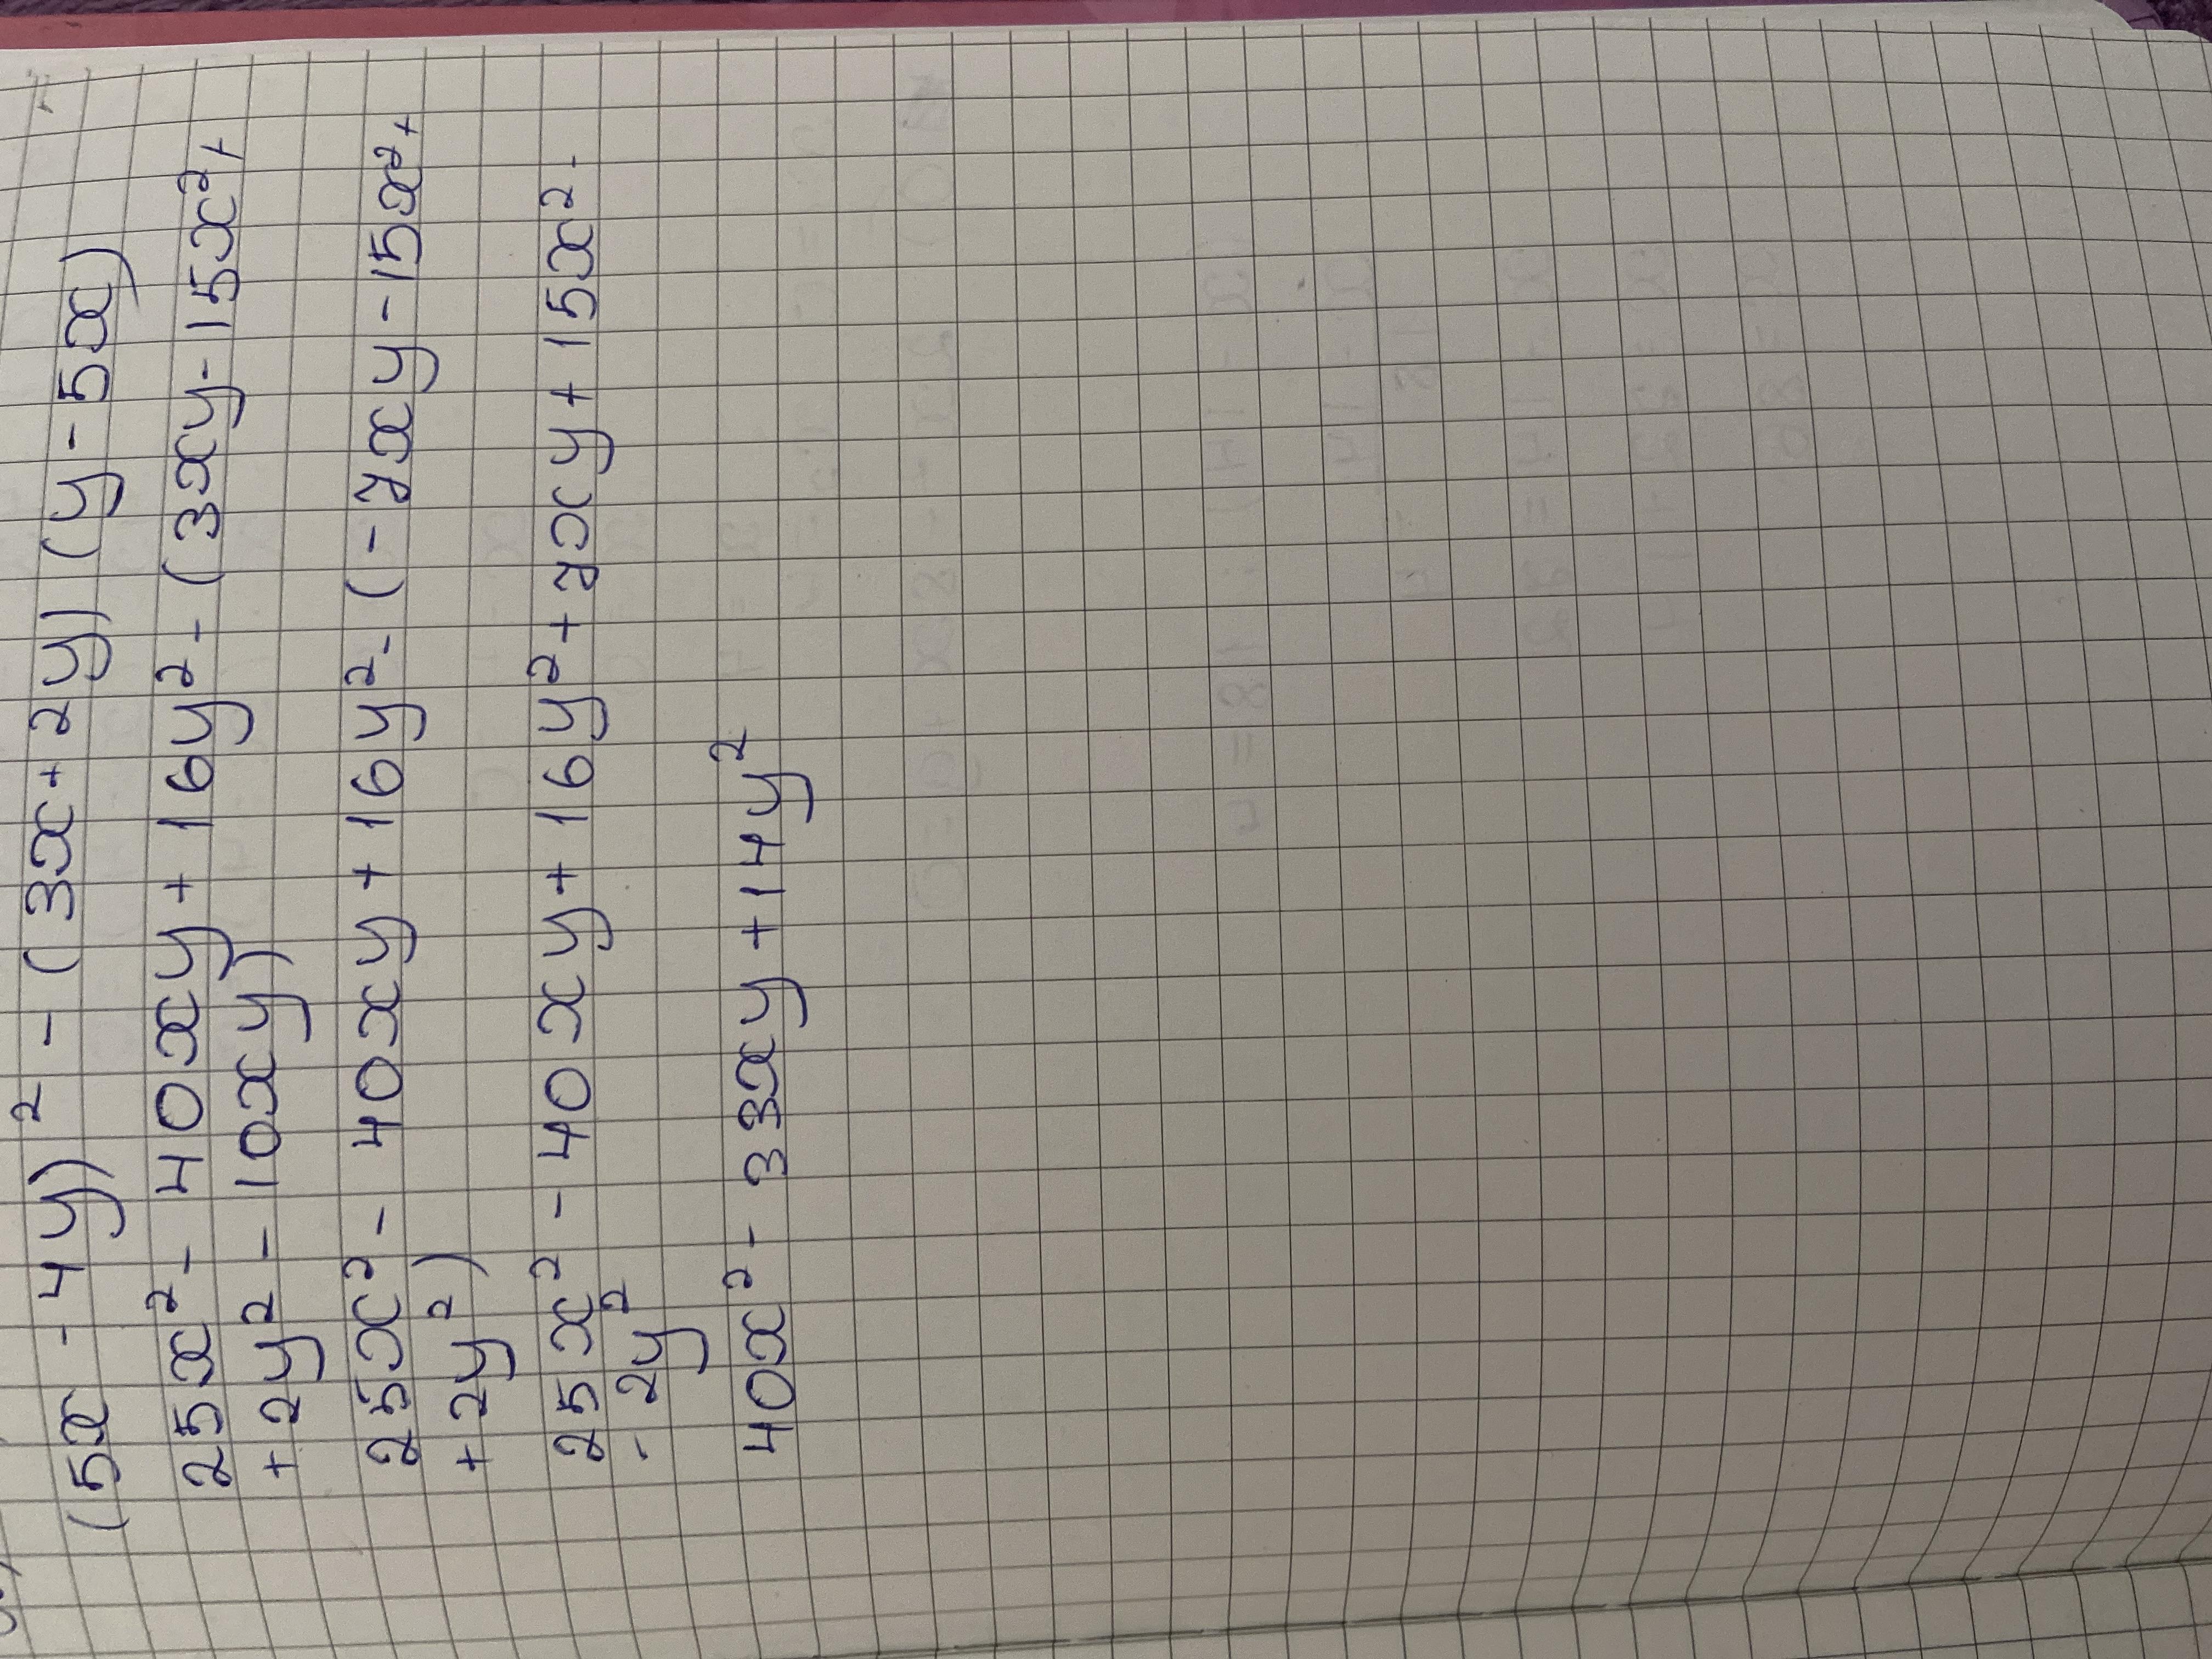 (5x - 4y)² - (3x + 2y) (y - 5x)
25x² - 40xy + 16y² - (3xy - 15x² +
+ 2y² - 10xy)
25x² - 40xy + 16y² - (-7xy - 15x² +
+ 2y²)
25x² - 40xy + 16y² + 7xy + 15x² -
- 2y²
40x² - 33xy + 14y²